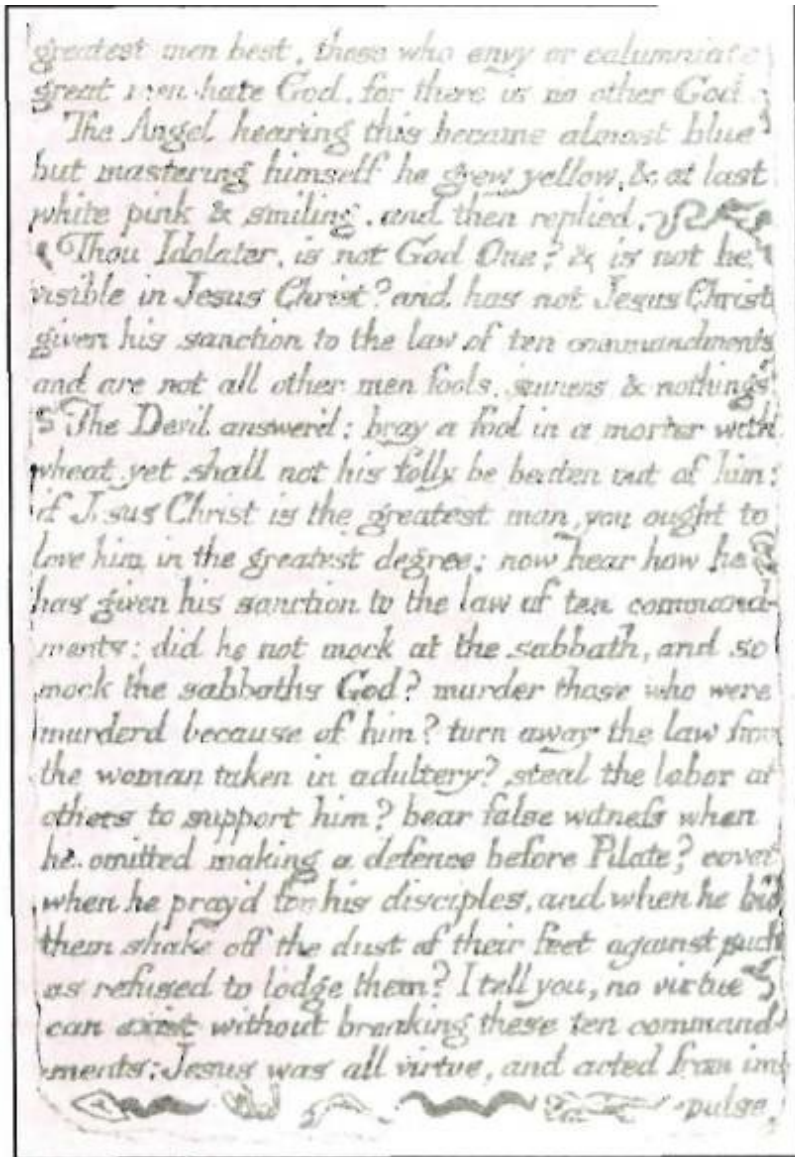 greatest men best, those who envy or calumniate
great men hate God, for there is no other God.
The Angel hearing this became almost blue
but mastering himself he grew yellow, & at last
white pink & smiling, and then replied,
Thou Idolater, is not God One? & is not he
visible in Jesus Christ? and has not Jesus Christ
given his sanction to the law of ten commandments
and are not all other men fools, sinners & nothings
The Devil answer'd; bray a fool in a morter with
wheat, yet shall not his folly be beaten out of him:
if Jesus Christ is the greatest man, you ought to
love him in the greatest degree; now hear how he
has given his sanction to the law of ten command-
ments: did he not mock at the sabbath, and so
mock the sabbaths God? murder those who were
murderd because of him? turn away the law from
the woman taken in adultery? steal the labor of
others to support him? bear false witneſs when
he omitted making a defence before Pilate? covet
when he pray'd for his disciples, and when he bid
them shake off the dust of their feet against such
as refused to lodge them? I tell you, no virtue
can exist without breaking these ten command-
ments: Jesus was all virtue, and acted from im-
pulse,